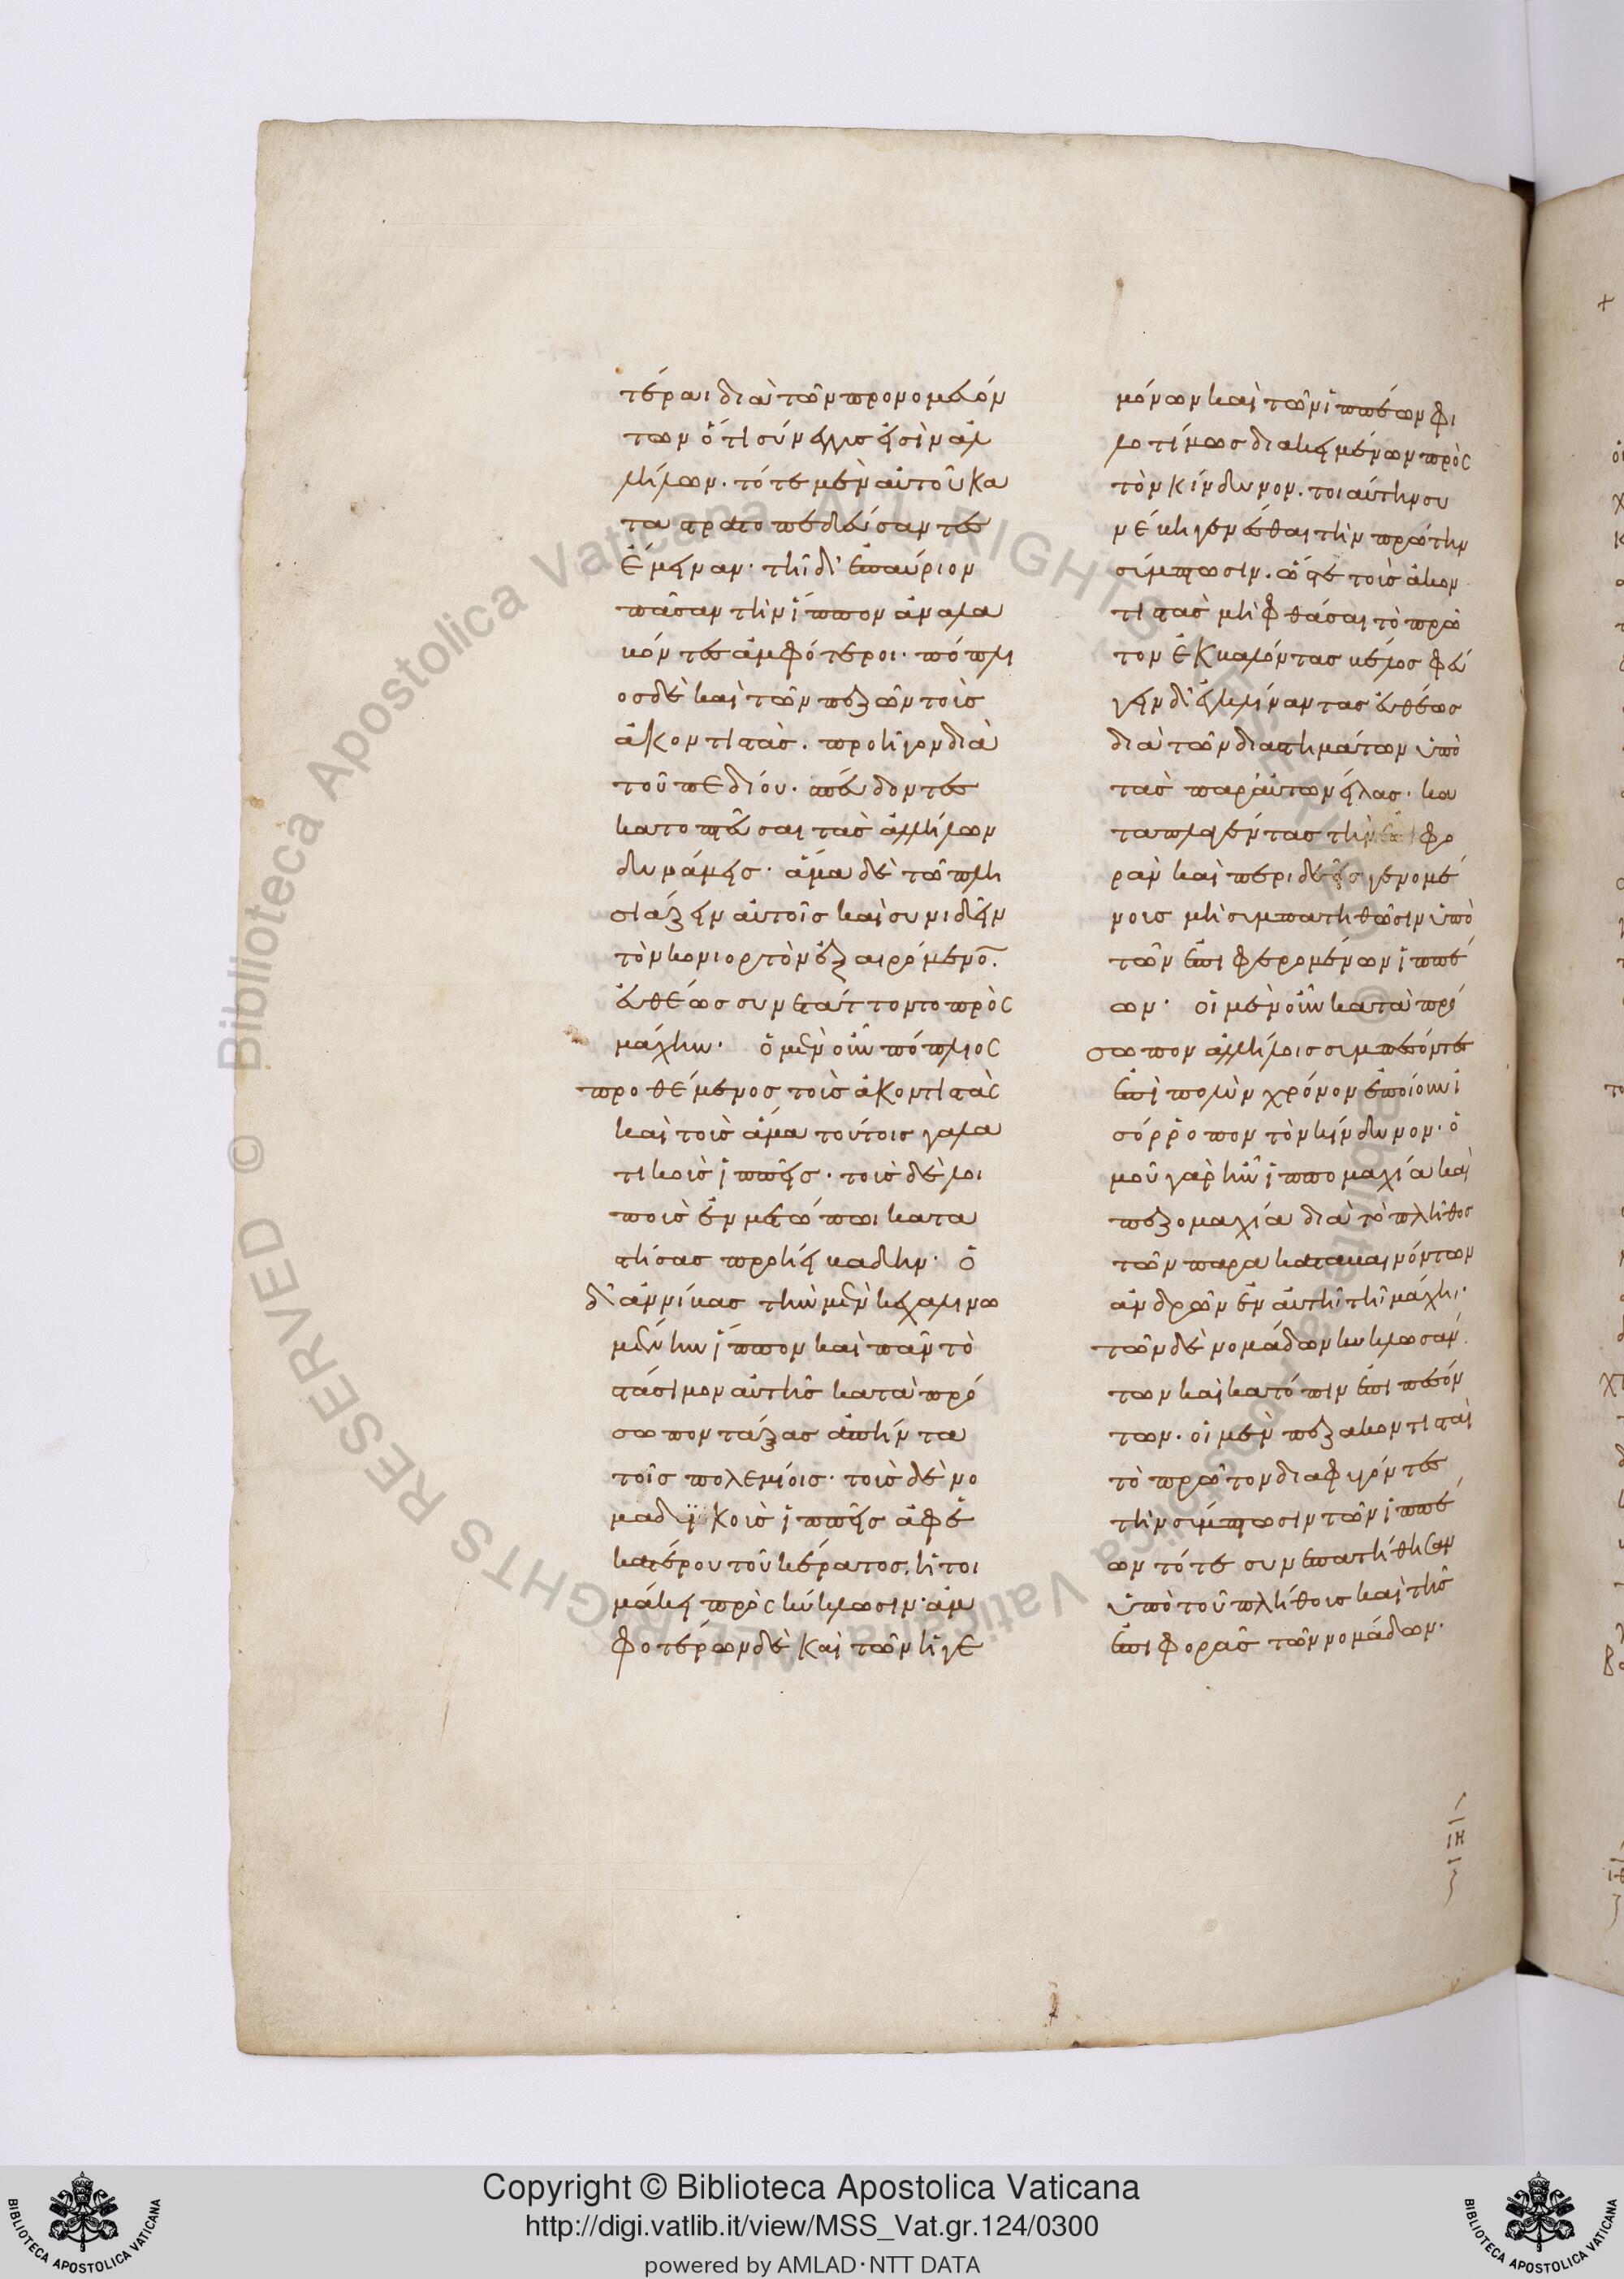 τέραι διὰ τῶν προνομευόν
των ὅτι σύνεγγυς εἰσὶν ἀλ
λήλων· τότε μὲν αὐτοῦ κα
ταστρατοπεδεύσαντες
ἔμειναν· τῆι δ' ἐπαύριον
πᾶσαν τὴν ἵππον ἀναλα
βόντες ἀμφότεροι· πόπλι
ος δὲ καὶ τῶν πεζῶν τοὺς
ἀκοντιστὰς· προῆγον διὰ
τοῦ πεδίου· σπεύδοντες
κατοπτεῦσαι τὰς ἀλλήλων
δυνάμεις· ἅμα δὲ τῶ πλη
σιάζειν αὐτοῖς καὶ συνιδεῖν
τὸν κονιορτὸν ἐξαιρόμενον.
εὐθέως συνετάττοντο πρὸς
μάχην· ὁ μὲν οὖν πόπλιος
προθέμενος τοὺς ἀκοντιστὰς
καὶ τοὺς ἅμα τούτοις γαλα
τικοὺς ἱππεῖς· τοὺς δὲ λοι
ποὺς ἐν μετώπωι κατα
στήσας προήει βάδην· ὁ
δ' ἀννίβας τὴν μὲν κεχαλινω
μένην ἵππον καὶ πᾶν τὸ
στάσιμον αὐτῆς κατὰ πρό
σωπον τάξας ἀπήντα
τοῖς πολεμίοις· τοὺς δὲ νο
μαδικοὺς ἱππεῖς ἀφ' ἑ
κατέρου τοῦ κέρατος. ἡτοι
μάκει πρὸς κύκλωσιν· ἀμ
φοτέρων δὲ καὶ τῶν ἡγε
μόνων καὶ τῶν ἱππέων φι
λοτίμως διακειμένων πρὸς
τὸν κίνδυνον. τοιαύτην συ
νέβη γενέσθαι τὴν πρώτην
σύμπτωσιν. ὥστε τοὺς ἀκον
τιστὰς μὴ φθάσαι τὸ πρῶ
τον ἐκβαλόντας βέλος φεύ
γειν δ' ἐγκλίναντας εὐθέως
διὰ τῶν διαστημάτων ὑπὸ
τὰς παρ' αὑτῶν εἴλας· κα
ταπλαγέντας τὴν ἐπιφο
ρὰν καὶ περιδεεῖς γενομέ
νους μὴ συμπατηθῶσιν ὑπὸ
τῶν ἐπιφερομένων ἱππέ
ων· οἱ μὲν οὖν κατὰ πρό
σωπον ἀλλήλοις συμπεσόντες
ἐπὶ πολὺν χρόνον ἐποίουν ἰ
σόρροπον τὸν κίνδυνον· ὁ
μοῦ γὰρ ἦν ἱππομαχία καὶ
πεζομαχία διὰ τὸ πλῆθος
τῶν παρακαταβαινόντων
ἀνδρῶν ἐν αὐτῆ τῆ μάχηι·
τῶν δὲ νομάδων κυκλωσάν
των καὶ κατόπιν ἐπιπεσόν
των· οἱ μὲν πεζακοντισταὶ
τὸ πρῶτον διαφυγόντες
τὴν σύμπτωσιν τῶν ἱππέ
ων τότε συνεπατήθησαν
ὑπὸ τοῦ πλήθους καὶ τῆς
ἐπιφορᾶς τῶν νομάδων·
Copyright © Biblioteca Apostolica Vaticana
http://digi.vatlib.it/view/MSS_Vat.gr.124/0300
powered by AMLAD·NTT DATA